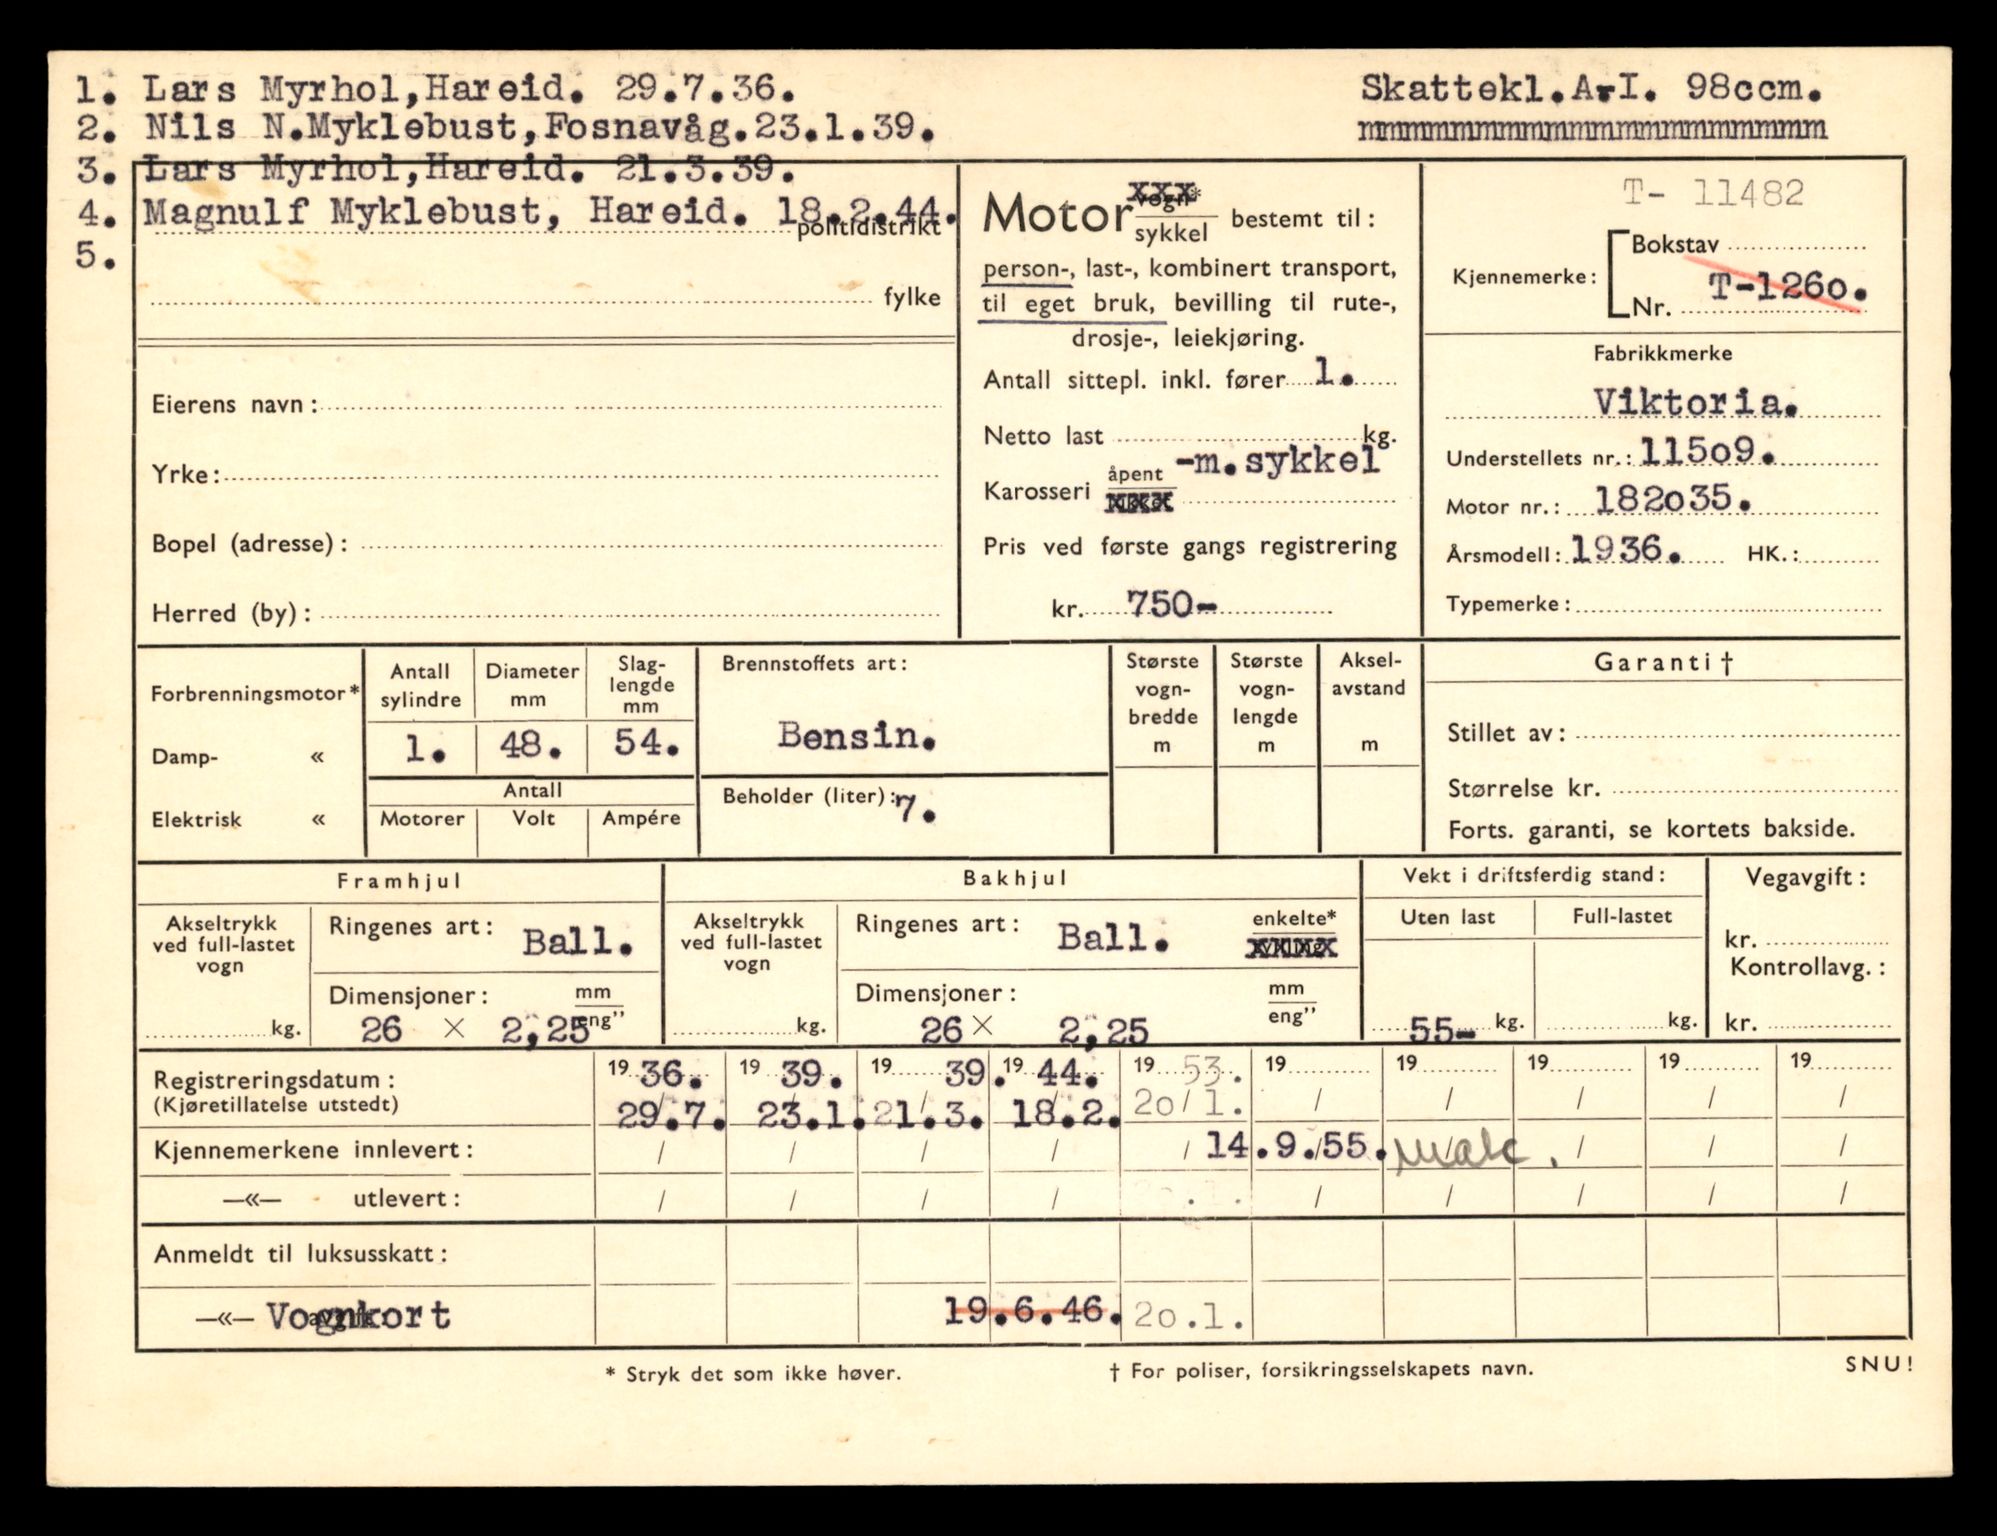 1. Lars Myrhol,Hareid. 29.7.36.
2. Nils N.Myklebust,Fosnavåg.23.1.39.
3. Lars Myrhol,Hareid. 21.3.39.
4. Magnulf Myklebust, Hareid. 18.2.44.
5.
Skattekl.A-I. 98ccm.
mmmmmmmmmmmmmmmmmmmm
politidistrikt
fylke
Eierens navn:
Yrke:
Bopel (adresse):
Herred (by):
Motor vogn* xxx
sykkel bestemt til:
person-, last-, kombinert transport,
til eget bruk, bevilling til rute-,
drosje-, leiekjøring.
Antall sittepl. inkl. fører 1.
Netto last kg.
Karosseri åpent -m.sykkel
xxx
Pris ved første gangs registrering
kr. 750-
T- 11482
Kjennemerke: Bokstav
Nr. T-126o.
Fabrikkmerke
Viktoria.
Understellets nr.: 115o9.
Motor nr.: 182o35.
Årsmodell: 1936. HK.:
Typemerke:
Forbrenningsmotor*
Damp- «
Elektrisk «
Antall sylindre
1.
Diameter mm
48.
Slag-lengde mm
54.
Antall
Motorer Volt Ampére
Brennstoffets art:
Bensin.
Beholder (liter): 7.
Største vogn-bredde m
Største vogn-lengde m
Aksel-avstand m
Garanti †
Stillet av:
Størrelse kr.
Forts. garanti, se kortets bakside.
Framhjul
Akseltrykk
ved full-lastet
vogn
kg.
Ringenes art: Ball.
Dimensjoner: mm
26 × 2,25 eng"
Bakhjul
Akseltrykk
ved full-lastet
vogn
kg.
Ringenes art: Ball. enkelte*
xxxx
Dimensjoner: mm
26 × 2,25 eng"
Vekt i driftsferdig stand:
Uten last Full-lastet
55- kg. kg.
Vegavgift:
kr.
Kontrollavg.:
kr.
Registreringsdatum: 19 36. 19 39. 19 39. 19 44. 19 53. 19 19 19 19 19
(Kjøretillatelse utstedt) 29/.7. 23/.1. 21/.3. 18/.2. 2o/ 1. / / / / /
Kjennemerkene innlevert: / / / / / 14.9./55. / / / /
—«— utlevert: / / / / 2o.1. / / / / /
Anmeldt til luksusskatt:
—«— Vognkort 19.6.46. 2o.1.
* Stryk det som ikke høver.
† For poliser, forsikringsselskapets navn.
SNU!